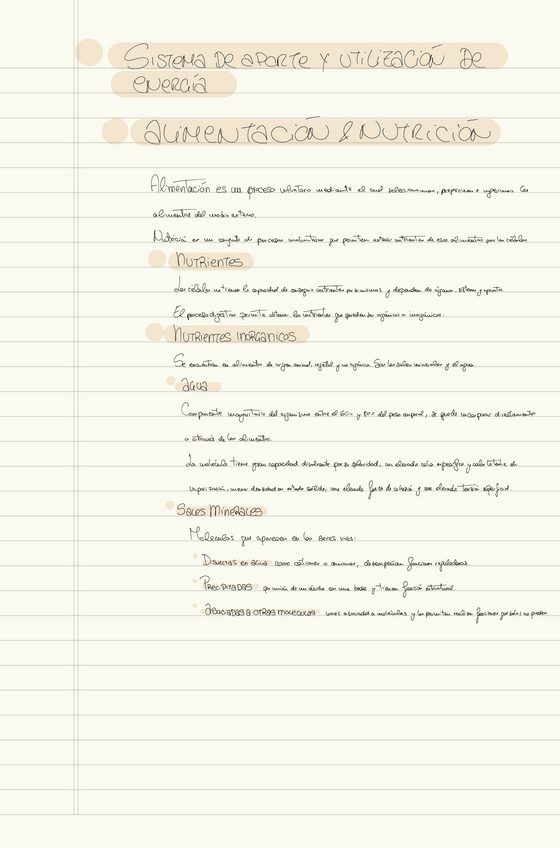 Sistema de aporte y utilización de
energía
Alimentación & Nutrición
Alimentación es un proceso voluntario mediante el cual seleccionamos, preparamos e ingerimos los
alimentos del medio externo.
Nutrición es un conjunto de procesos involuntarios que permiten extraer nutrientes de esos alimentos para las células
Nutrientes
Las células no tienen la capacidad de conseguir nutrientes por si mismas y dependen de órganos, sistemas y aparatos
El proceso digestivo permite obtener los nutrientes que pueden ser orgánicos o inorgánicos.
Nutrientes Inorganicos
Se encuentran en alimentos de origen animal, vegetal y no orgánica Son las sales minerales y el agua
agua
Componente mayoritario del organismo entre el 60% y 80% del peso corporal, se puede incorporar directamente
o através de los alimentos.
La molécula tiene gran capacidad disolvente por su polaridad, un elevado calor específico y calor latente de
vaporización, menor densidad en estado sólido, una elevada fuerza de cohesión y una elevada tensión superficial.
Sales Minerales
Moleculas que aparecen en los seres vivos:
Disueltas en agua como cationes o aniones, desempeñan funciones reguladoras.
Precipitadas por unión de un ácido con una base y tienen función estructural.
Asociadas a otras moleculas iones asociados a moléculas y les permiten realizar funciones que por si no pueden